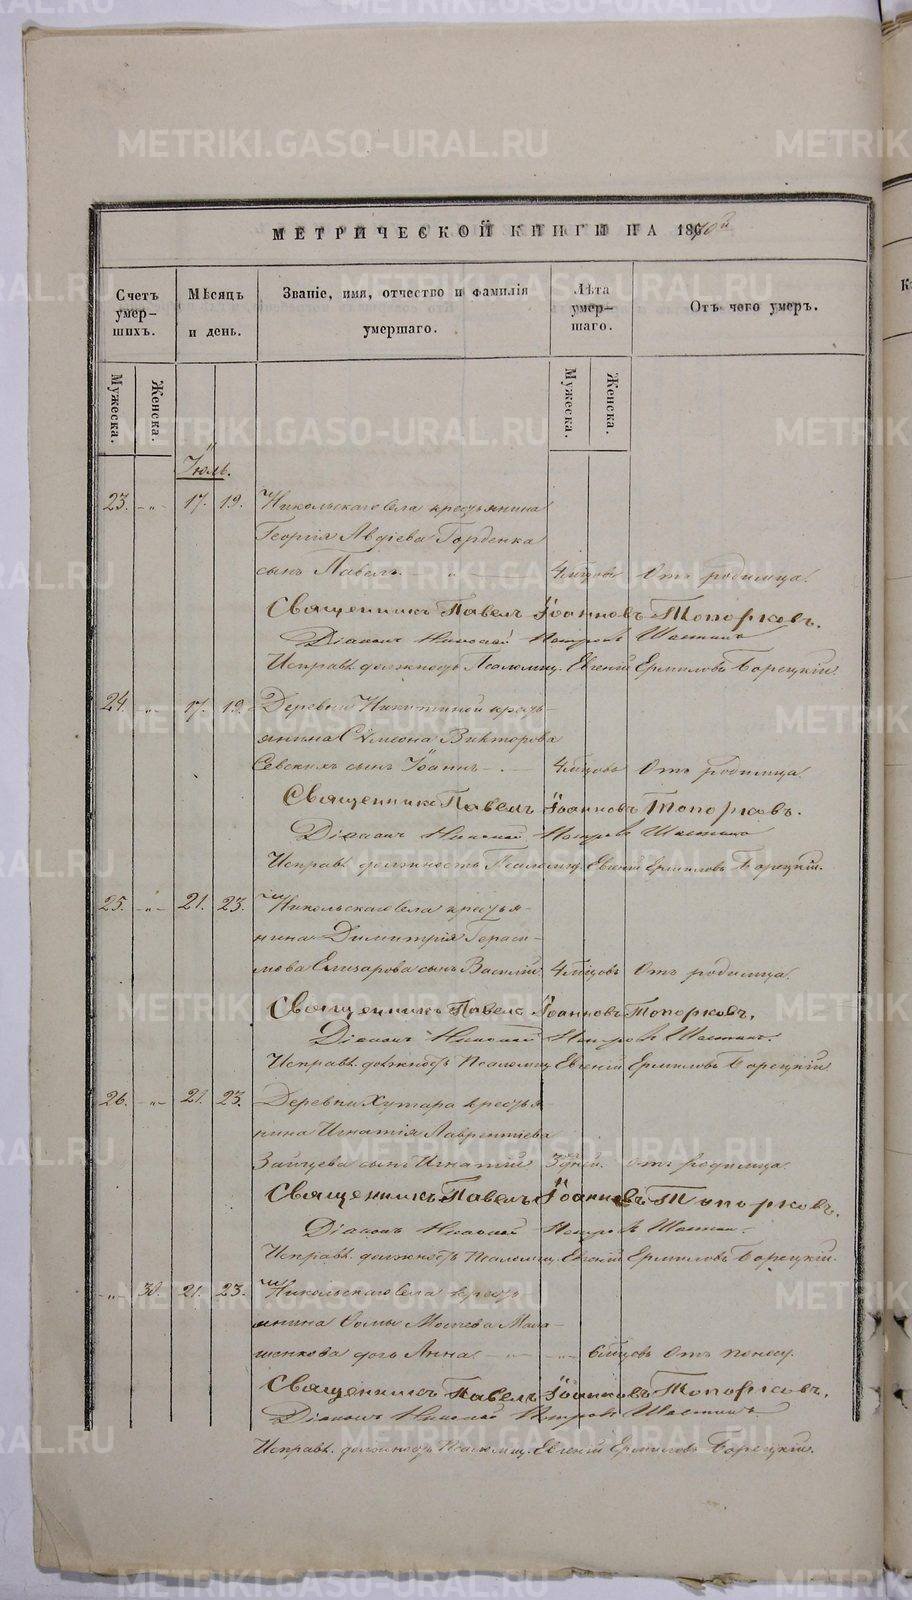 МЕТРИЧЕСКОЙ КНИГИ НА 1870й
Счетъ умер-шихъ. Мѣсяцъ и день. Званіе, имя, отчество и фамилія умершаго. Лѣта умер-шаго. Отъ чего умеръ.
Мужеска. Женска. Мужеска. Женска.
Іюль.
23. -„- 17. 19. Никольскаго села крестьянина
Георгія Авдіева Горденка
сынъ Павелъ 4 мѣсцовъ Отъ родимца.
Священникъ Павелъ Іоанновъ Топорковъ.
Діаконъ Николай Петровъ
Исправл. должность Псаломщ. Евгеній Ермиловъ Борецкій.
24. „ 17. 19. Деревни Никитиной кресть-
янина Сѵмеона Викторова
Севскихъ сынъ Іоаннъ 4 мѣсцовъ Отъ родимца.
Священникъ Павелъ Іоанновъ Топорковъ.
Діаконъ Николай Петровъ
Исправл. должность Псаломщ. Евгеній Ермиловъ Борецкій.
25. -„- 21. 23. Никольскаго села крестья-
нина Димитрія Гераси-
мова Елизарова сынъ Василій 4 мѣсцовъ Отъ родимца.
Священникъ Павелъ Іоанновъ Топорковъ.
Діаконъ Николай Петровъ
Исправл. должность Псаломщ. Евгеній Ермиловъ Борецкій.
26. -„- 21. 23. Деревни Хутара крестья-
нина Игнатія Лаврентіева
Зайцева сынъ Игнатій 3 дней. отъ родимца.
Священникъ Павелъ Іоанновъ Топорковъ.
Діаконъ Николай Петровъ
Исправл. должность Псаломщ. Евгеній Ермиловъ Борецкій.
-„- 30. 21. 23. Никольскаго села кресть-
янина Ѳомы Моисеева Мала-
шенкова дочь Анна. „ 6 мѣсцовъ Отъ поносу.
Священникъ Павелъ Іоанновъ Топорковъ.
Діаконъ Николай Петровъ
Исправл. должность Псаломщ. Евгеній Ермиловъ Борецкій.
METRIKI.GASO-URAL.RU